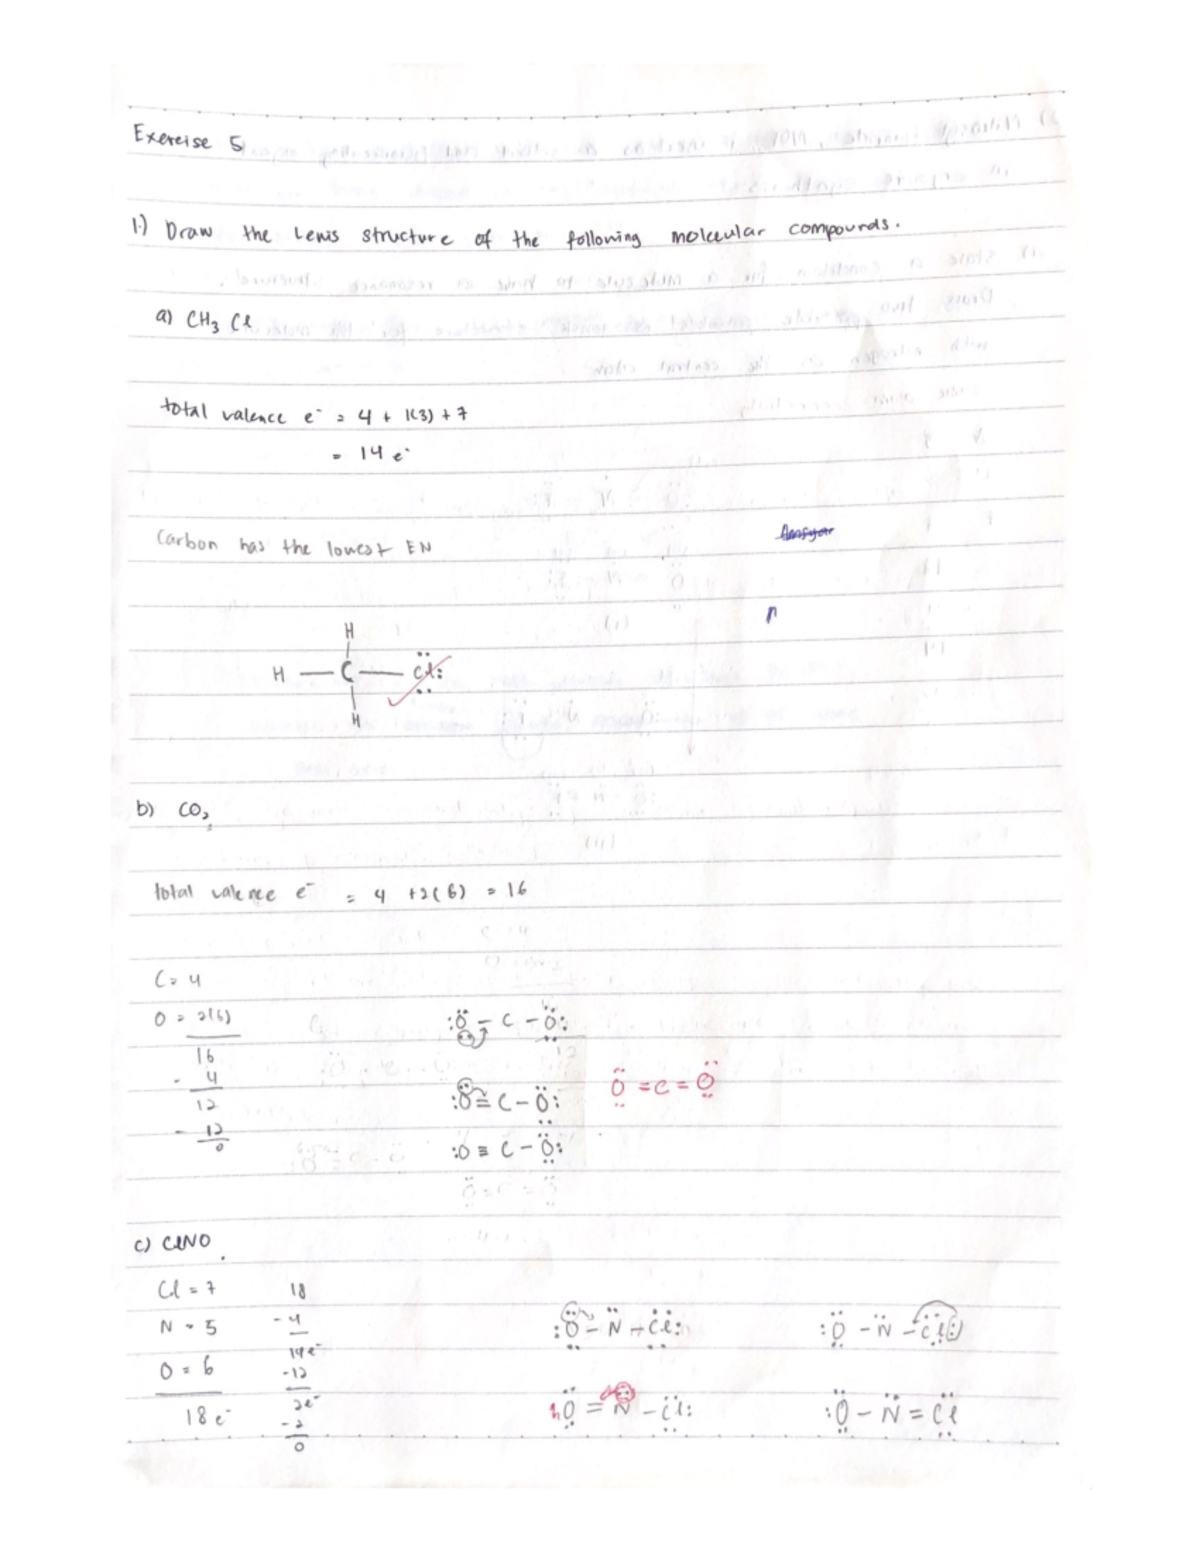 Exercise 5
1.) Draw the Lewis structure of the following molecular compounds.
a) CH₃ Cl
total valence e⁻ = 4 + 1(3) + 7
= 14 e⁻
Carbon has the lowest EN
H
H — C — Cl:
H
b) CO₂
total valence e⁻ = 4 + 2(6) = 16
C = 4
O = 2(6)
16
- 4
12
- 12
0
:O – C – O:
:O = C – O:
O = C = O
:O ≡ C – O:
c) ClNO
Cl = 7
N = 5
O = 6
18 e⁻
18
- 4
14 e⁻
- 12
2e⁻
- 2
0
:O – N – Cl:
:O – N – Cl:
O = N – Cl:
:O – N = Cl